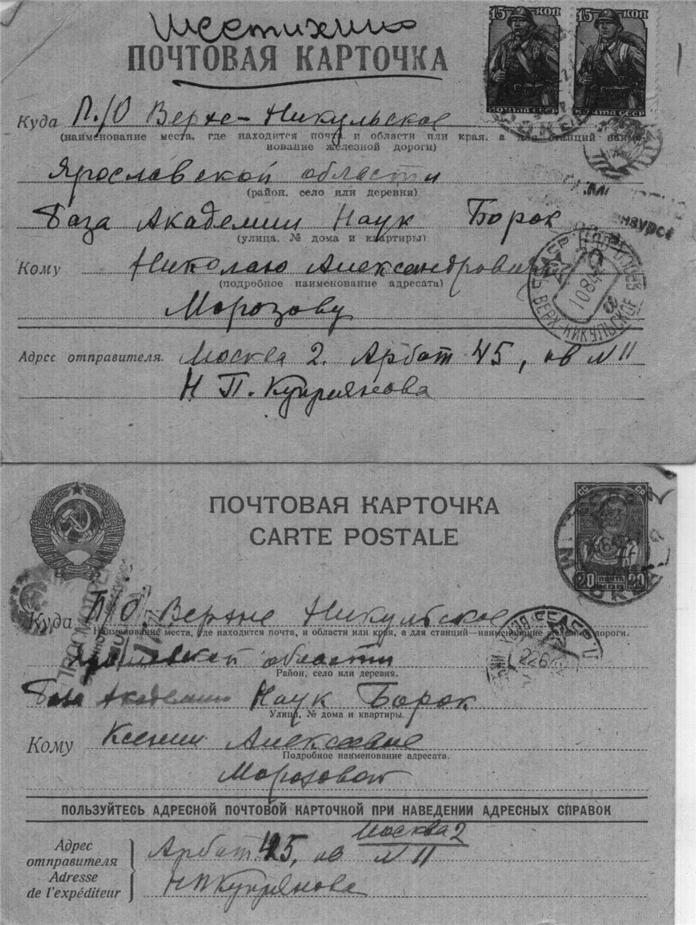 Шестихино
ПОЧТОВАЯ КАРТОЧКА
15 КОП 15 КОП
ПОЧТА СССР ПОЧТА СССР
Куда П/О Верхе-Никульское
(наименование места, где находится почта, и области или края, а для станций наиме-
нование железной дороги)
Ярославской области
(район, село или деревня)
База Академии Наук Борок
(улица, № дома и квартиры)
Кому Николаю Александровичу
(подробное наименование адресата)
Морозову
ВЕРХ-НИКУЛЬСКОЕ
Адрес отправителя. Москва 2. Арбат 45, кв N 11
Н П. Куприянова
ПОЧТОВАЯ КАРТОЧКА
CARTE POSTALE
20 20
МОСКВА
Куда П/О Верхне Никульское
Наименование места, где находится почта, и области или края, а для станций—наименование железной дороги.
Ярославской области
Район, село или деревня.
База Академии Наук Борок
Улица, № дома и квартиры.
Кому Ксении Алексеевне
Подробное наименование адресата.
Морозовой
ПОЛЬЗУЙТЕСЬ АДРЕСНОЙ ПОЧТОВОЙ КАРТОЧКОЙ ПРИ НАВЕДЕНИИ АДРЕСНЫХ СПРАВОК
Москва 2
Адрес отправителя Арбат 45, кв N 11
Adresse de l'expéditeur Н П Куприянова